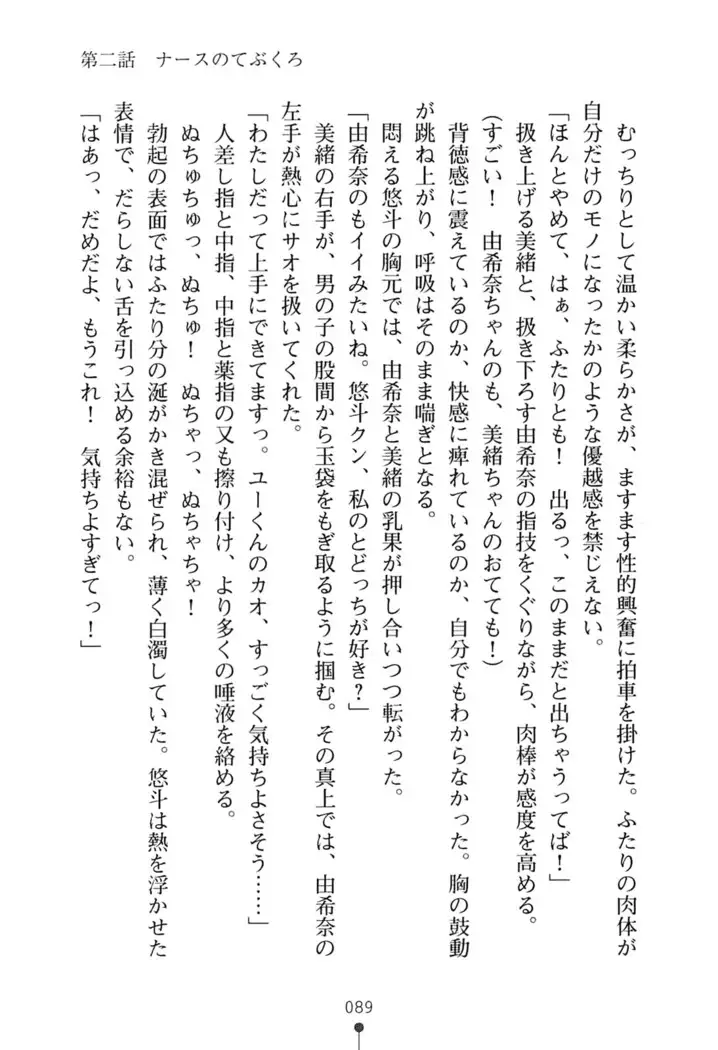 第二話　ナースのてぶくろ
むっちりとして温かい柔らかさが、ますます性的興奮に拍車を掛けた。ふたりの肉体が
自分だけのモノになったかのような優越感を禁じえない。
「ほんとやめて、はぁ、ふたりとも！　出るっ、このままだと出ちゃうってば！」
扱き上げる美緒と、扱き下ろす由希奈の指技をくぐりながら、肉棒が感度を高める。
(すごい！　由希奈ちゃんのも、美緒ちゃんのおてても！)
背徳感に震えているのか、快感に痺れているのか、自分でもわからなかった。胸の鼓動
が跳ね上がり、呼吸はそのまま喘ぎとなる。
悶える悠斗の胸元では、由希奈と美緒の乳果が押し合いつつ転がった。
「由希奈のもイイみたいね。悠斗クン、私のとどっちが好き？」
美緒の右手が、男の子の股間から玉袋をもぎ取るように掴む。その真上では、由希奈の
左手が熱心にサオを扱いてくれた。
「わたしだって上手にできてますっ。ユーくんのカオ、すっごく気持ちよさそう……」
人差し指と中指、中指と薬指の又も擦り付け、より多くの唾液を絡める。
ぬちゅちゅっ、ぬちゅ！　ぬちゃっ、ぬちゃちゃ！
勃起の表面ではふたり分の涎がかき混ぜられ、薄く白濁していた。悠斗は熱を浮かせた
表情で、だらしない舌を引っ込める余裕もない。
「はあっ、だめだよ、もうこれ！　気持ちよすぎてっ！」
089